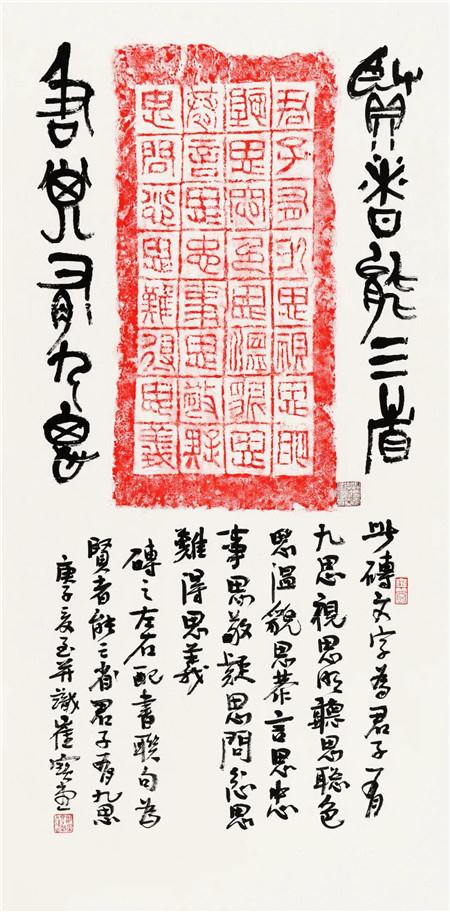 賢者能三省
君子有九思視思明
聽思聰色思溫貌思
恭言思忠事思敬疑
思問忿思難得思義
君子有九思
此磚文字為君子有
九思視思明聽思聰色
思溫貌思恭言思忠
事思敬疑思問忿思
難得思義
磚之左右配書聯句為
賢者能三省君子有九思
庚子夏至并識崔寶堂